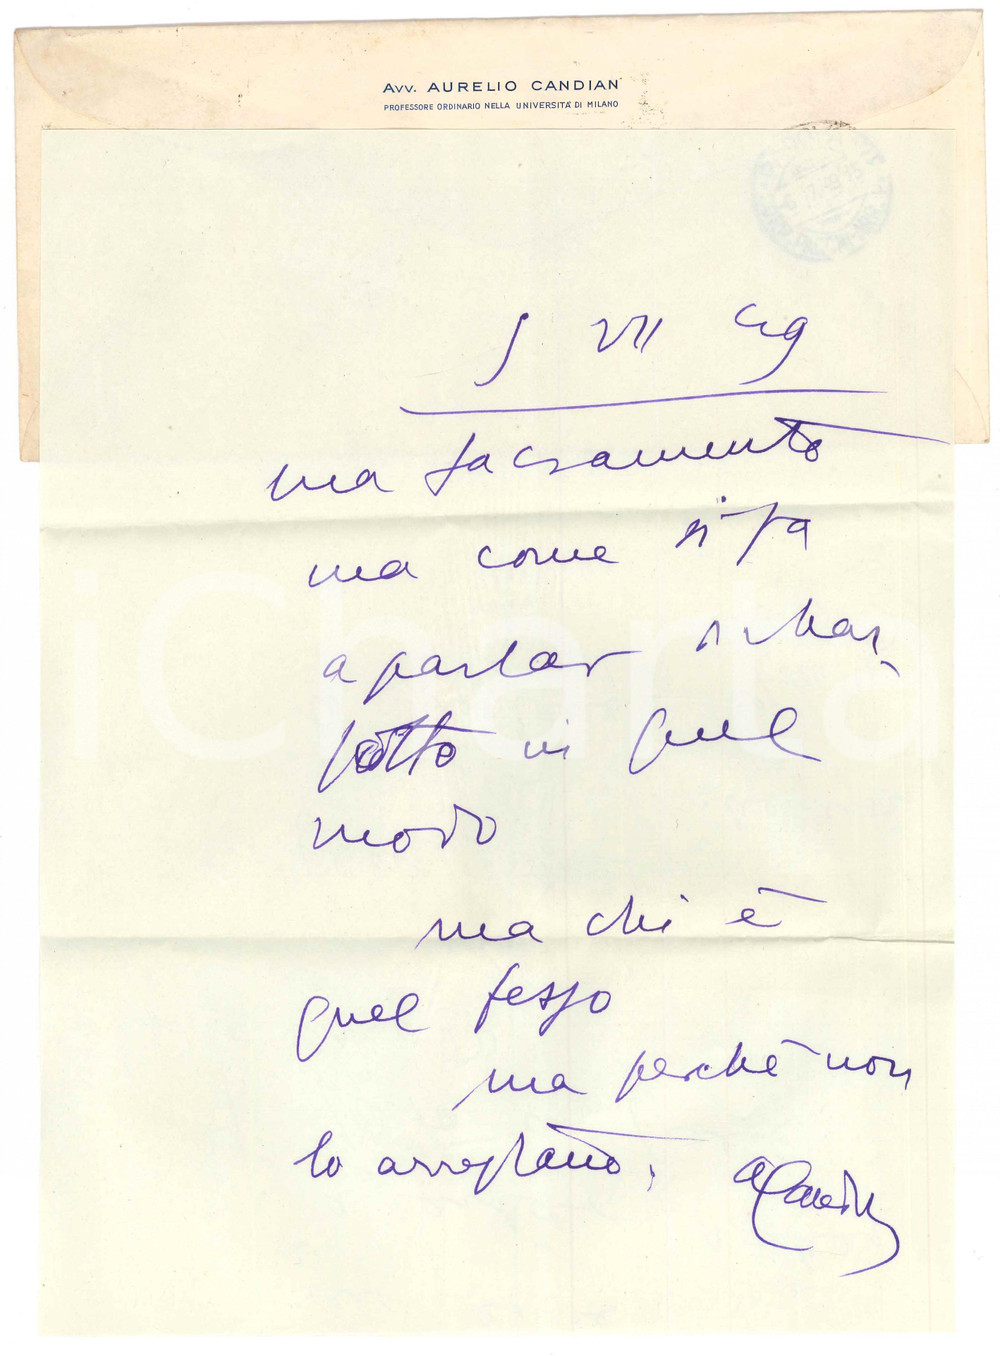 Avv. AURELIO CANDIAN
PROFESSORE ORDINARIO NELLA UNIVERSITA' DI MILANO
iCharta
5 VII
ma sacramento
ma come si fa
a parlar
in quel
modo
ma chi è
quel fesso
ma perchè non
lo arrestano.